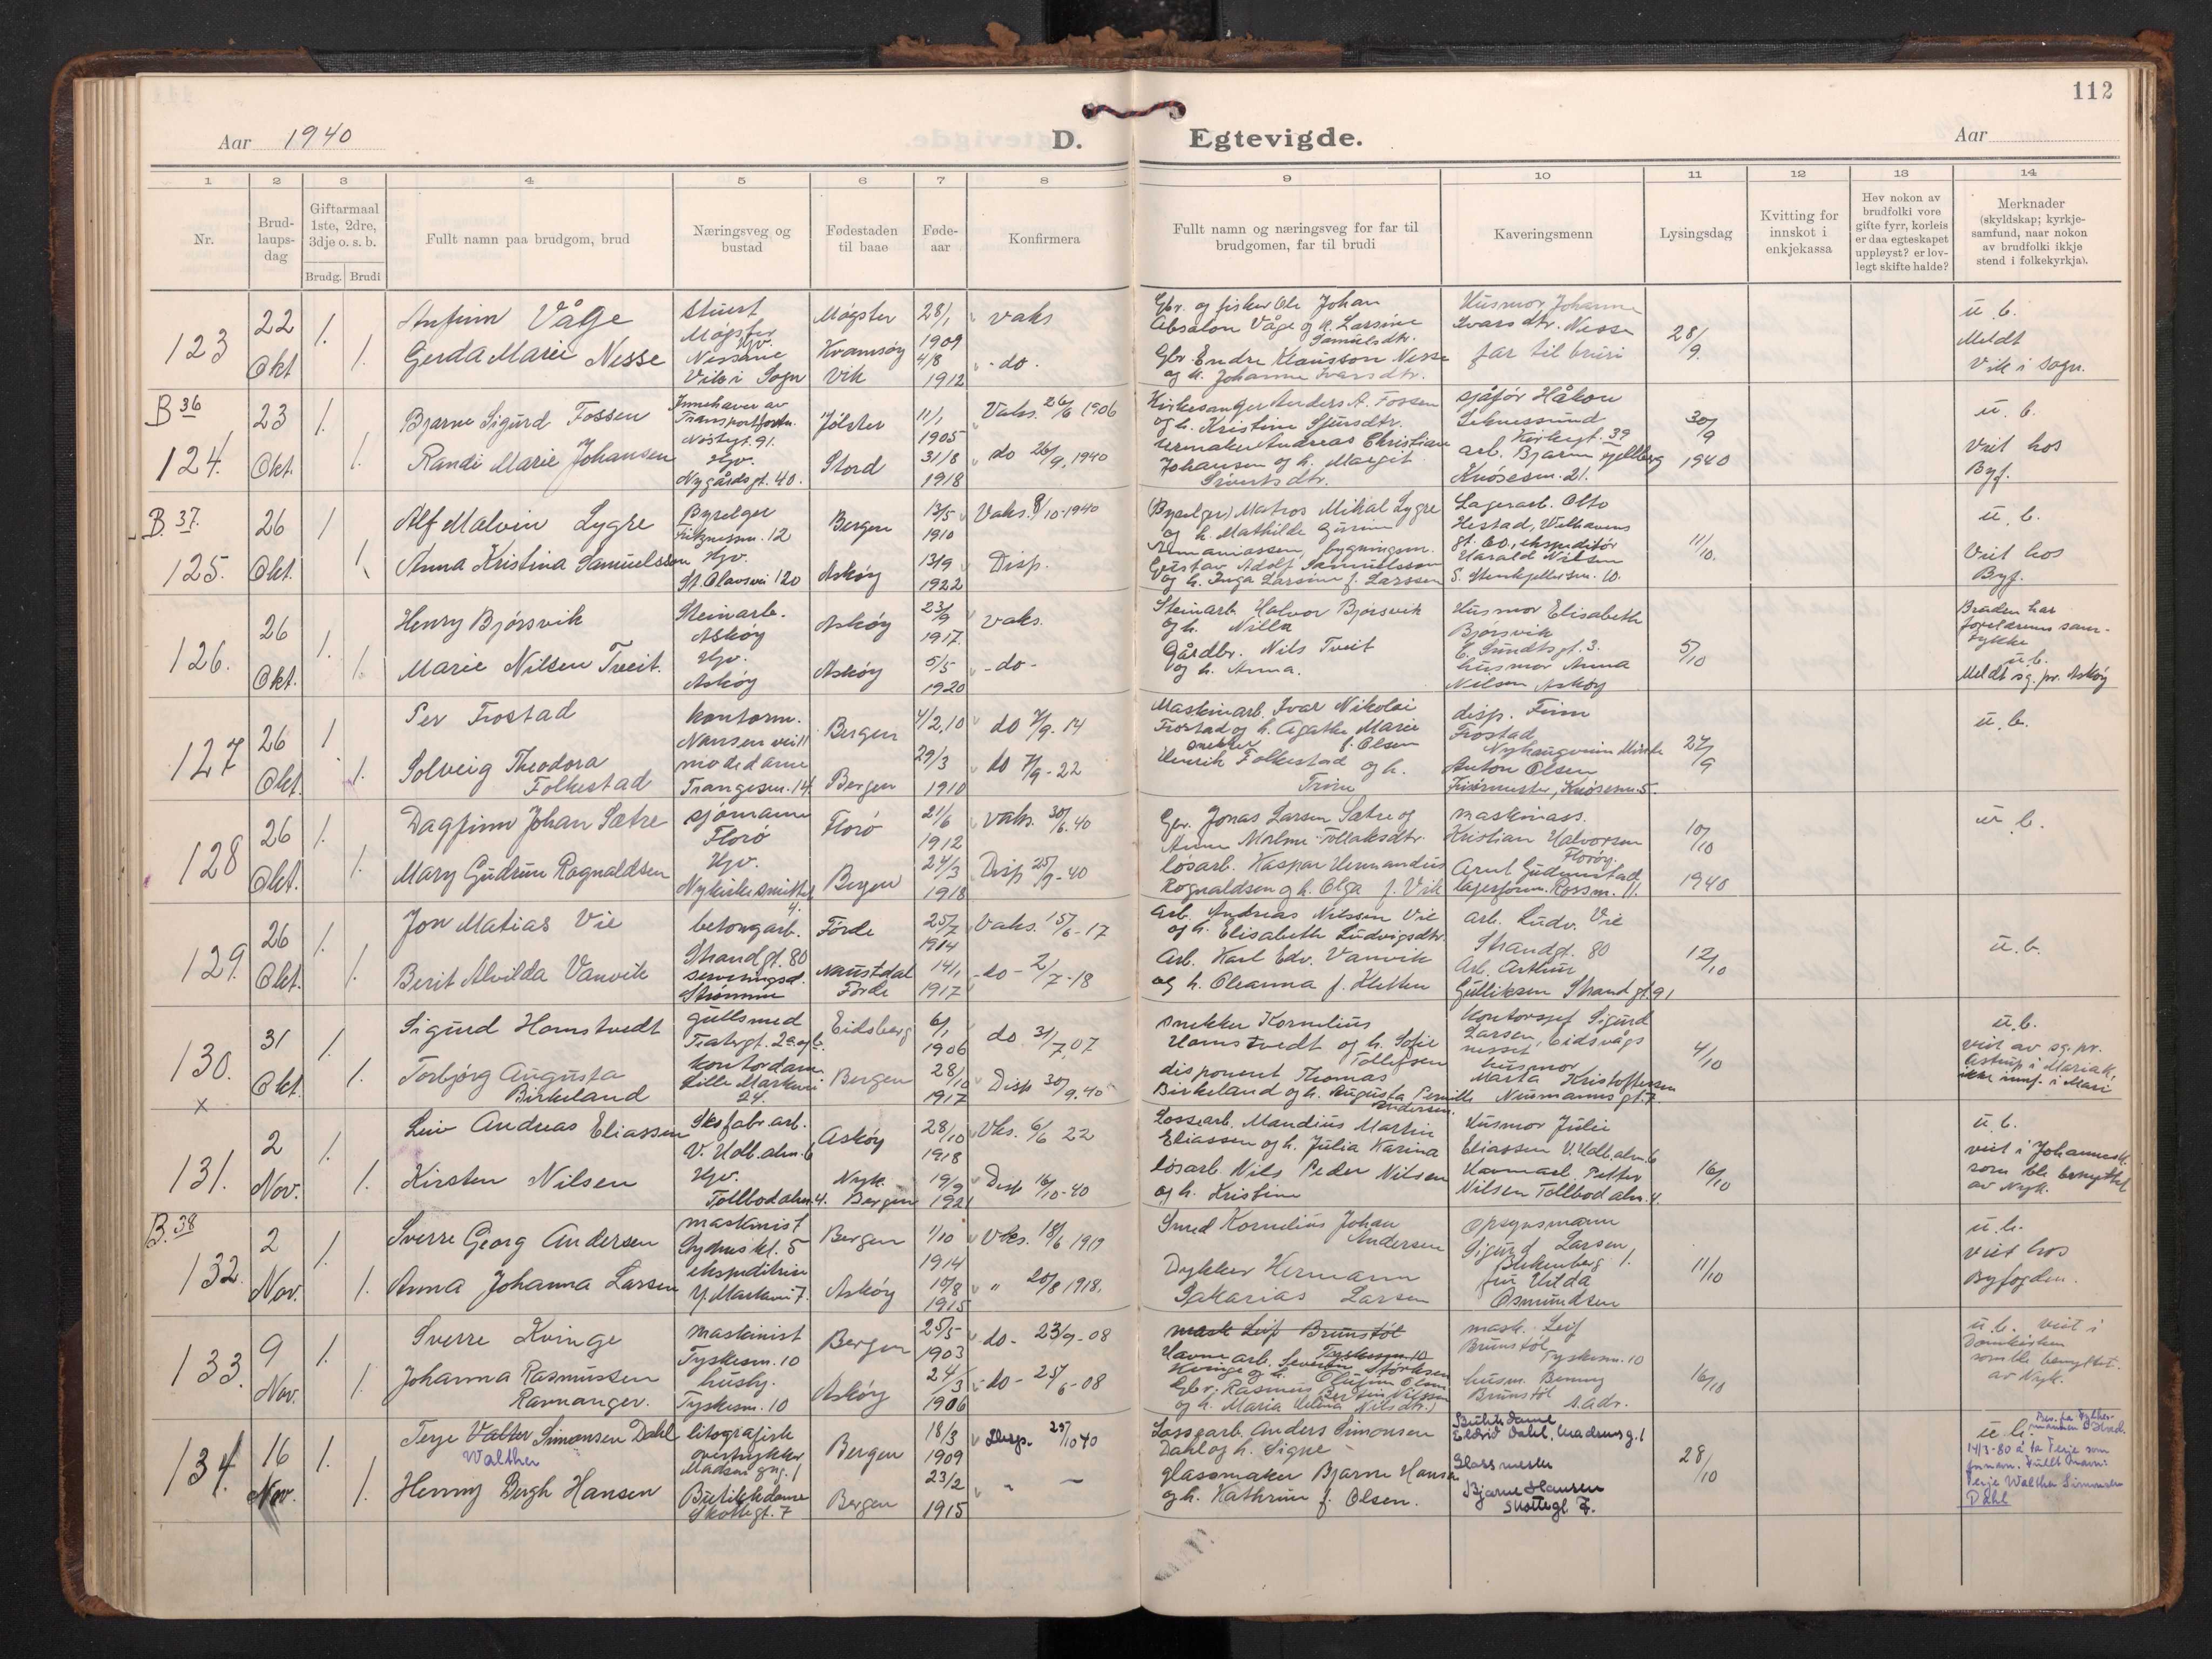 112
Aar 1940
D. Egtevigde.
Aar
1 2 3 4 5 6 7 8 9 10 11 12 13 14
Nr.
Brud-
laups-
dag
Giftarmaal
1ste, 2dre,
3dje o. s. b.
Brudg. Brudi
Fullt namn paa brudgom, brud
Næringsveg og
bustad
Fødestaden
til baae
Føde-
aar
Konfirmera
Fullt namn og næringsveg for far til
brudgomen, far til brudi
Kaveringsmenn
Lysingsdag
Kvitting for
innskot i
enkjekassa
Hev nokon av
brudfolki vore
gifte fyrr, korleis
er daa egteskapet
uppløyst? er lov-
legt skifte halde?
Merknader
(skyldskap; kyrkje-
samfund, naar nokon
av brudfolki ikkje
stend i folkekyrkja).
123
22
Okt
1.
1.
Anfinn Våge
Gerda Marie Nesse
Stuert
Møgster
Hjv.
Nessane
Vik i Sogn
Møgster
Kvamsøy
Vik
28/1
1909
4/8
1912
vaks
- do -
Gbr. og fisker Ole Johan
Absalon Våge og h. Larsine
Samuelsdtr.
Gbr. Endre Klausson Nesse
og h. Johanne Ivarsdtr.
Husmor Johanne
Ivarsdtr. Nesse
far til bruri
28/9
u. b.
Meldt
Vik i Sogn.
B 36
124.
23
Okt.
1.
1.
Bjarne Sigurd Fossen
Randi Marie Johansen
Innehaver av
Transportforr.
Nøstegt. 91.
Hjv.
Nygårdsgt. 40.
Jølster
Stord
11/1
1905
31/8
1918
Vaks. 26/6 1906
do 26/9, 1940
Kirkesanger Anders A. Fossen
og h. Kristine Sjursdtr.
Urmaker Andreas Christian
Johansen og h. Margit
Sivertsdtr.
sjåfør Håkon
Kirkegt. 39
arb. Bjarne Gjellberg
Knøsesm. 21.
30/9
1940
u. b.
Veit hos
Byf.
B. 37.
125.
26
Okt.
1
1
Alf Malvin Lygre
Anna Kristina Samuelsson
Byselger
12
Hjv.
St. Olavsvei 120
Bergen
Askøy
13/5
1910
13/9
1922
Vaks. 8/10-1940
Disp.
(Byselger) Matros Mikal Lygre
og h. Mathilde Gurine
bygningsm.
Gustav Adolf Samuelsson
og h. Inga Larsine f. Larssen
Lagerarb. Otto
Hestad, Welhavens
gt. 60., ekspeditør
Harald Nilsen
S. Stenkjellersm. 10.
11/10.
u. b.
Veit hos
Byf.
126.
26
Okt.
1.
1.
Henry Bjørsvik
Marie Nilsen Tveit.
Steinarb.
Askøy
Hjv.
Askøy
Askøy
Askøy
23/9
1917.
5/5
1920
vaks.
- do -
Steinarb. Halvor Bjørsvik
og h. Nilla
Gårdbr. Nils Tveit
og h. Anna.
Husmor Elisabeth
Bjørsvik
E. Sundtsgt. 3.
husmor Anna
Nilsen Askøy
5/10
Bruden har
foreldrenes sam-
tykke
u. b.
Meldt sg. pr. Askøy
127
26
Okt.
1
1.
Per Frostad
Solveig Theodora
Folkestad
kontorm.
Nansenvei 11
motedame
Trangesm. 14
Bergen
Bergen
4/2, 10
29/3
1910
do 7/9. 14
do 7/9 - 22
Maskinarb. Ivar Nikolai
Frostad og h. Agathe Marie
snekker f. Olsen
Henrik Folkestad og h.
Trine
disp. Finn
Frostad
Anton Olsen
Frisørmester, Knøsesm. 5.
27/9
u. b.
128
26
Okt.
1.
1.
Dagfinn Johan Sætre
Mary Gudrun Rognaldsen
sjømann
Florø
Hjv.
Nykirkesmuttet
4.
Florø
Bergen
21/6
1912
24/3
1918
vaks. 30/6. 40
Disp 25/9 - 40
Gbr. Jonas Larsen Sætre og
Anne Malme Tollaksdtr.
løsarb. Kaspar Hermandius
Rognaldsen og h. Olga f. Vik
maskinass.
Kristian Halvorsen
Florøy.
Arnt Gudmestad
lagerform. Rossm. 11.
10/10
1940
u. b.
129.
26
Okt.
1.
1.
Jon Matias Vie
Berit Alvilda Vanvik
betongarb.
Strandgt. 80
serveringsd.
Strømmen
Førde
Naustdal
Førde
25/7
1914
14/1
1917
Vaks. 15/6 - 17
- do - 2/7 - 18
Arb. Andreas Nilssen Vie
og h. Elisabeth Ludvigsdtr.
Arb. Karl Edv. Vanvik
og h. Oleanna f. Kletten
arb. Ludv. Vie
Strandgt. 80
Arb. Arthur
Gulliksen Strandgt. 91
12/10
u. b.
130.
x
31
Okt.
1.
1.
Sigurd Hamstvedt
Torbjørg Augusta
Birkeland
gullsmed
Teatergt. 2a og b.
kontordame
Lille Markevei
24.
Eidsberg
Bergen
6/1
1906
28/10
1917
do 31/7, 07
Disp 30/9. 40
snekker Kornelius
Hamstvedt og h. Sofie
Tollefsen
disponent Thomas
Birkeland og h. Augusta Pernille
Andersen.
Kontorsjef Sigurd
Larsen, Eidsvågs
nesset
husmor
Marta Kristoffersen
Neumannsgt. 7.
4/10
u. b.
veit av sg. pr.
Astrup i Mariak.
ikke innf. i Mari
131.
2
Nov.
1.
1.
Leiv Andreas Eliassen
Kirsten Nilsen
Skofabr.arb.
V. Hølb.alm. 6
Hjv.
Tollbodalm. 4.
Askøy
Nyk.
Bergen
28/10
1918
19/9
1921
Vks. 6/6 22
Disp 16/10-40
Lossearb. Mandius Martin
Eliassen og h. Julia Karina
løsarb. Nils Peder Nilsen
og h. Kristine
Husmor Julie
Eliassen V. Hølb.alm. 6
Havnearb. Petter
Nilsen Tollbodalm. 4.
16/10
u. b.
veit i Johannesk.
som ble benyttet
av Nyk.
B. 38
132.
2
Nov.
1.
1.
Sverre Georg Andersen
Anna Johanna Larsen
maskinist
Sydneskl. 5
ekspeditrise
Y. Markevei 7.
Bergen
Askøy
1/10
1914
10/8
1915
Vks. 18/6 1917
" 20/8 1918.
Smed Kornelius Johan
Andersen
Dykker Hermann
Sakarias Larsen
Opsynsmann
Sigurd Larsen
Blekenberg 1.
fru Hilda
Osmundsen
11/10
u. b.
viet hos
Byfogden.
133.
9
Nov.
1.
1.
Sverre Kvinge
Johanna Rasmussen
Ravnanger.
maskinist
Tyskesm. 10
husby.
Tyskesm. 10
Bergen
Askøy
25/5
1903
24/3
1906
do - 23/9 - 08
- do - 25/6 - 08
mask Leif Brunstøl
Tyskesm. 10
Havnearb. Severin
Kvinge og h. Olufine Olsen
Gbr. Rasmus Berstein Nilssen
og h. Maria Helena Nilsdtr.
mask. Leif
Brunstøl
Tyskesm. 10
husm. Benny
Brunstøl
s. adr.
16/10
u. b. veit i
Domkirken
som ble benyttet.
av Nyk.
134.
16
Nov.
1.
1.
Terje Valter Simonsen Dahl
Walther
Henny Bergh Hansen
litografisk
overtrykker
Madsens gng. 1
Butikkdame
Skottegt. 7
Bergen
Bergen
18/3
1909
23/2
1915
Disp. 25/10 40
" -
Lossearb. Anders Simonsen
Dahl og h. Signe
glassmaker Bjarne Hansen
og h. Kathrine f. Olsen.
Butikkdame
Eldrid Dahl, Madsensg. 1
Glassmester
Bjarne Hansen
Skottegt. 7.
28/10
u. b.
14/3-80 å ta Terje som
fornavn. Fullt navn:
Terje Walther Simonsen
Dahl